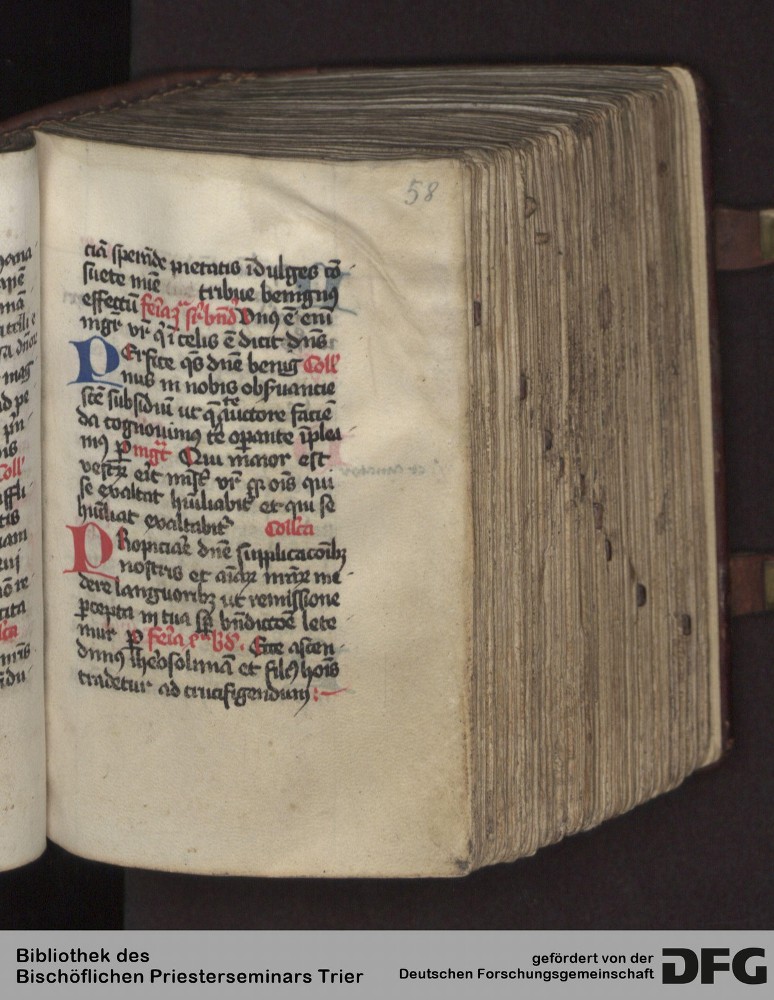 58
ciā sperāde pietatis īdulges cō
suete mīe tribue benignꝰ
effectū feīa ij sr bn̄d Vnus ē enī
mgr̄ vr̄ q̄ i celis ē dicit dn̄s
PErfice qs dn̄e benig Coll'
nus in nobis obẜuancie
scē subsidiū ut q̄ te auctore faciē
da cognouimꝰ te oꝑante īplea
mꝰ ꝑ mgt̄ Qui maior est
vestrꝝ erit mīst̄ vr̄ qr oīs qui
se exaltat hūiliabit̄ et qui se
hūiliat exaltabit̄ Collcā
PRopiciare dn̄e supplicacōibꝫ
nostris et aīaꝝ nr̄aꝝ me
dere languoribꝫ ut remissione
ꝑcepta in tua sꝑ bn̄dictōe lete
mur ꝑ feīa Ecce ascen
dimꝰ iherosolimā et filiꝰ hoīs
tradetur ad crucifigendum
Bibliothek des
Bischöflichen Priesterseminars Trier
gefördert von der
Deutschen Forschungsgemeinschaft
DFG